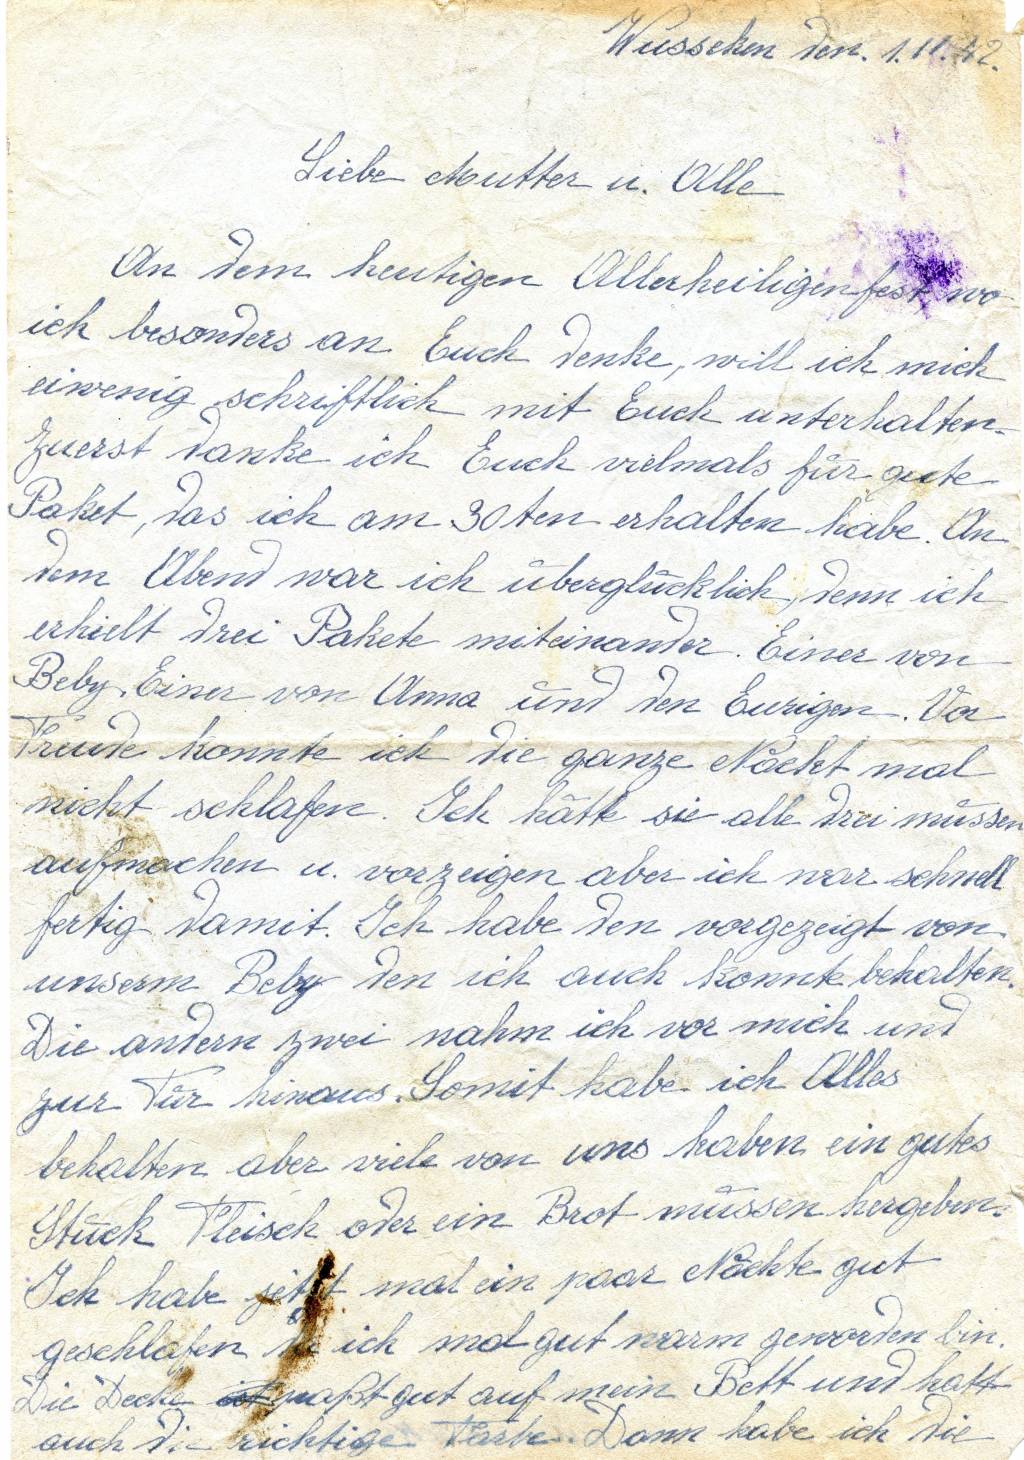 Wusseken den. 1.11.42.
Liebe Mutter u. Alle
An dem heutigen Allerheiligenfest wo
ich besonders an Euch denke, will ich mich
eiwenig schriftlich mit Euch unterhalten.
Zuerst danke ich Euch vielmals für gute
Paket, das ich am 30ten erhalten habe. An
dem Abend war ich überglücklich, denn ich
erhielt drei Pakete miteinander. Einer von
Beby. Einer von Anna und den Eurigen. Vor
Freude konnte ich die ganze Nacht mal
nicht schlafen. Ich hätte sie alle drei müssen
aufmachen u. vorzeigen aber ich war schnell
fertig damit. Ich habe den vorgezeigt von
unserm Beby den ich auch konnte behalten.
Die andern zwei nahm ich vor mich und
zur Tür hinaus. Somit habe ich Alles
behalten aber viele von uns haben ein gutes
Stück Fleisch oder ein Brot müssen hergeben.
Ich habe jetzt mal ein paar Nächte gut
geschlafen ich mal gut warm geworden bin.
Die Decke paßt gut auf mein Bett und hatt
auch die richtige Farbe. Dann habe ich die